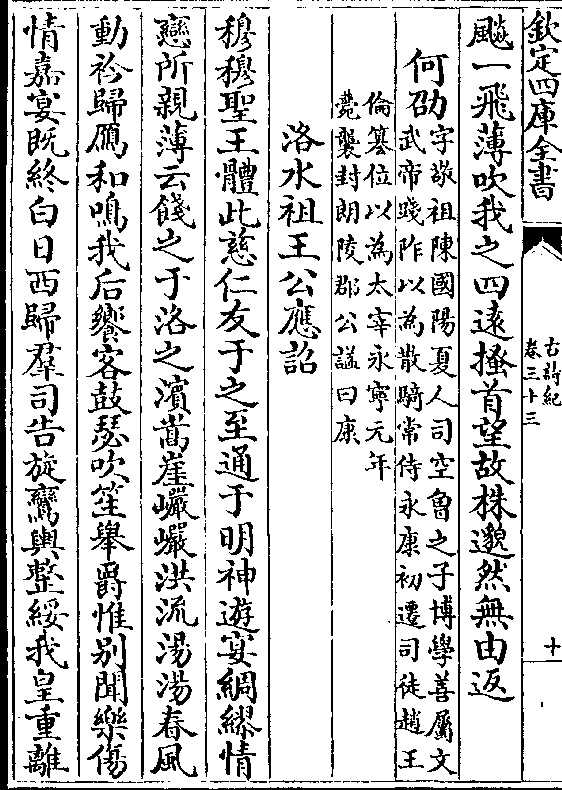 欽定四庫全書
古詩紀
卷三十三
十
飈一飛薄吹我之四遠搔首望故株邈然無由返
何劭
字敬祖陳國陽夏人司空魯之子博學善屬文
武帝踐阼以為散騎常侍永康初遷司徒趙王
倫簒位以為太宰永寧元年
薨襲封朗陵郡公諡曰康
洛水祖王公應詔
穆穆聖王體此慈仁友于之至通于明神遊宴綢繆情
戀所親薄云餞之于洛之濵嵩崖巖巖洪流湯湯春風
動衿歸鴈和鳴我后饗客鼓瑟吹笙舉爵惟别聞樂傷
情嘉宴既終白日西歸羣司告旋鸞輿整綏我皇重離